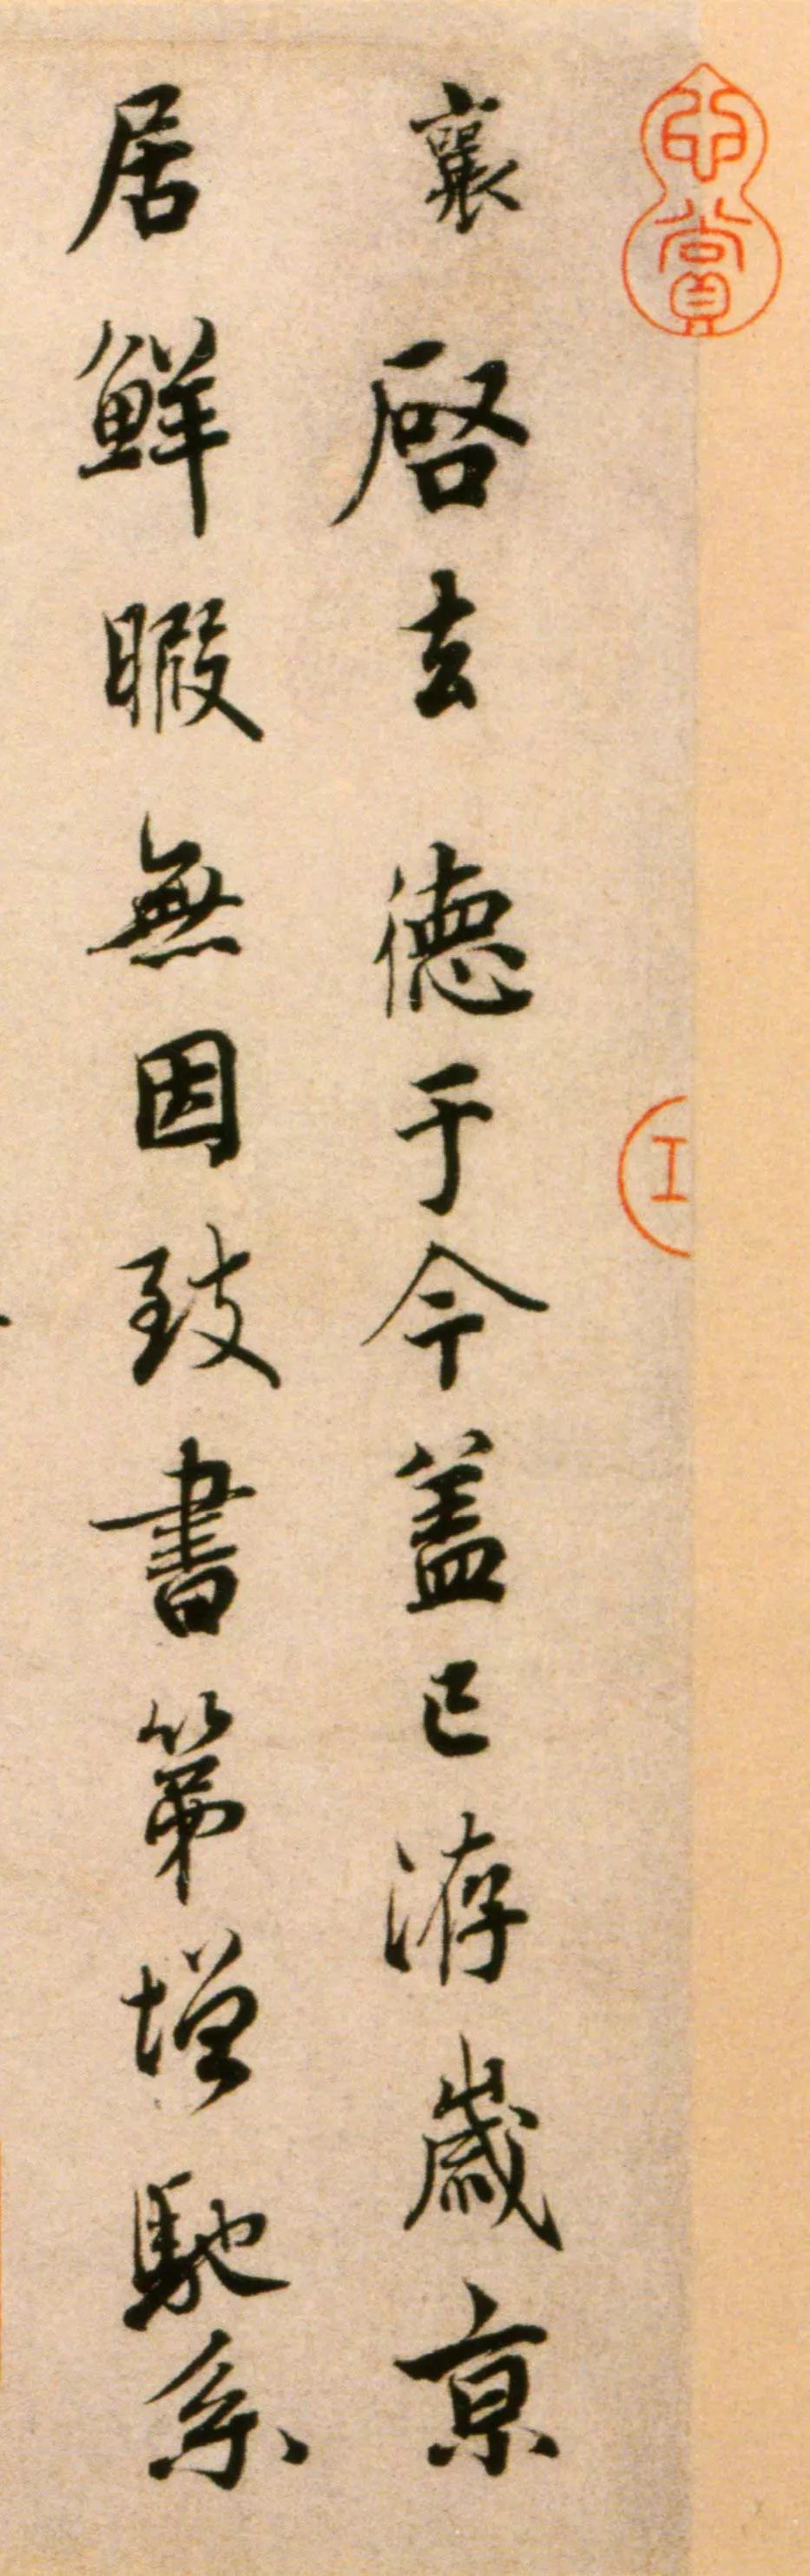 襄啓去德于今盖已洊歲京
居鮮暇無因致書第增馳系